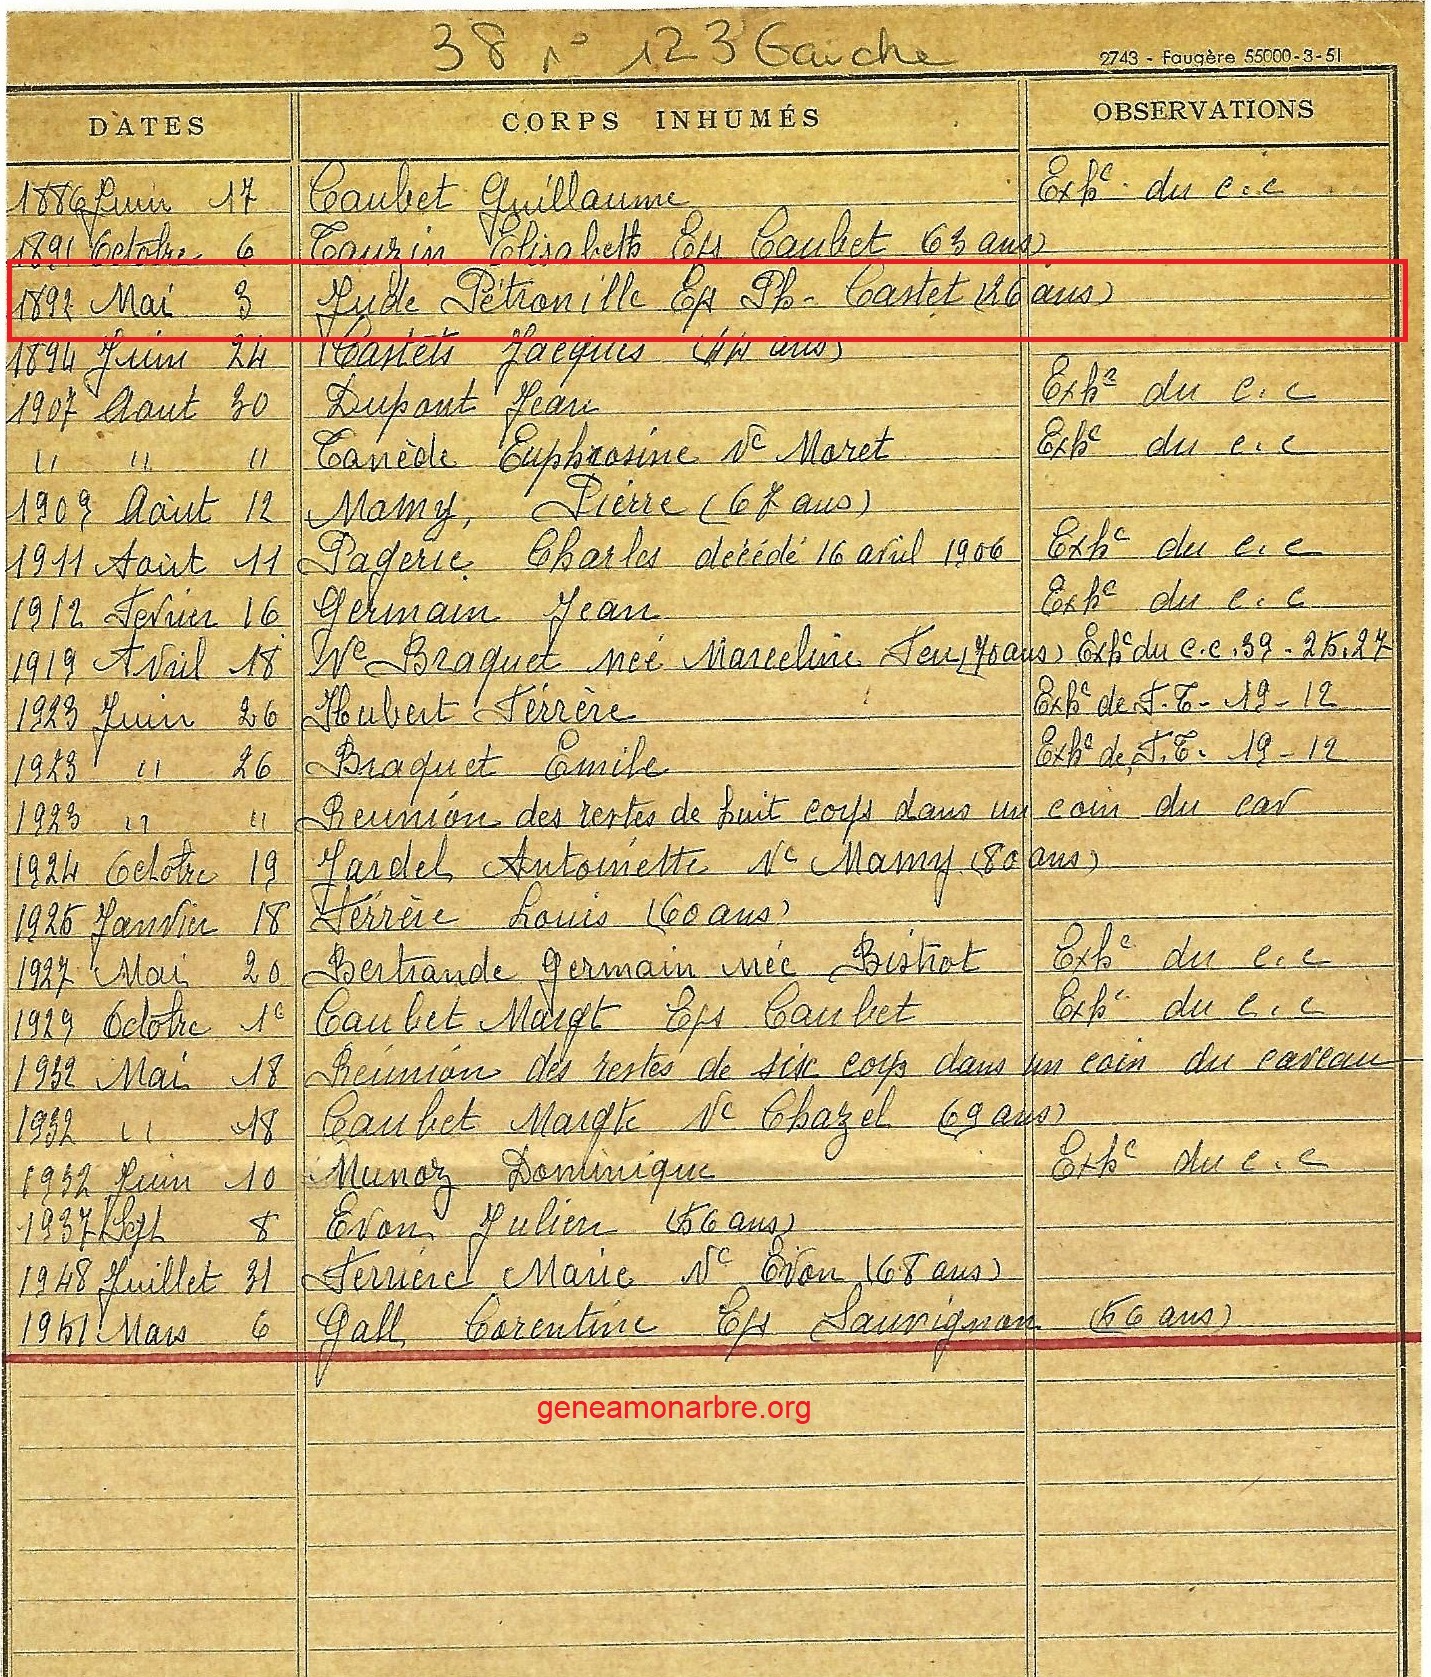 38 n° 123 Gauche
2743 - Faugère 55000-3-51
DATES CORPS INHUMÉS OBSERVATIONS
1886 Juin 17 Caubet Guillaume Exh.c du c.c
1891 Octobre 6 Tauzin Elisabeth Eps Caubet (63 ans)
1892 Mai 3 Jude Pétronille Eps Ph- Castet (26 ans)
1894 Juin 24 Castets Jacques (44 ans)
1907 Aout 30 Dupont Jean Exh.c du c.c
" " " Tanède Euphrosine Vc Moret Exh.c du c.c
1909 Août 12 Mamy, Pierre (67 ans)
1911 Août 11 Pagerie Charles décédé 16 avril 1906 Exh.c du c.c
1912 Fevrier 16 Germain Jean Exh.c du c.c
1919 Avril 18 Vve Braquet née Marceline Feu (70 ans) Exh.c du c.c. 39 - 25.27
1923 Juin 26 Hubert Férrère Exh.c de T.T- 19 - 12
1923 " 26 Braquet Emile Exh.c de T.T. 19 - 12
1923 " " Reunion des restes de huit corps dans un coin du cav
1924 Octobre 19 Jardel Antoinette Vc Mamy (80 ans)
1925 Janvier 18 Férrère Louis (60 ans)
1927 Mai 20 Bertrande Germain née Bistrot Exh.c du c.c
1929 Octobre 1c Caubet Margt Eps Caubet Exh.c du c.c
1932 Mai 18 Réunion des restes de six corps dans un coin du caveau
1932 " 18 Caubet Margte Vc Chazel (69 ans)
1932 Juin 10 Munoz Dominique Exh.c du c.c
1937 Sept 8 Evon Julien (56 ans)
1948 Juillet 31 Ferrière Marie Vc Evon (68 ans)
1951 Mars 6 Gall Corentine Eps Sauvignon (56 ans)
geneamonarbre.org